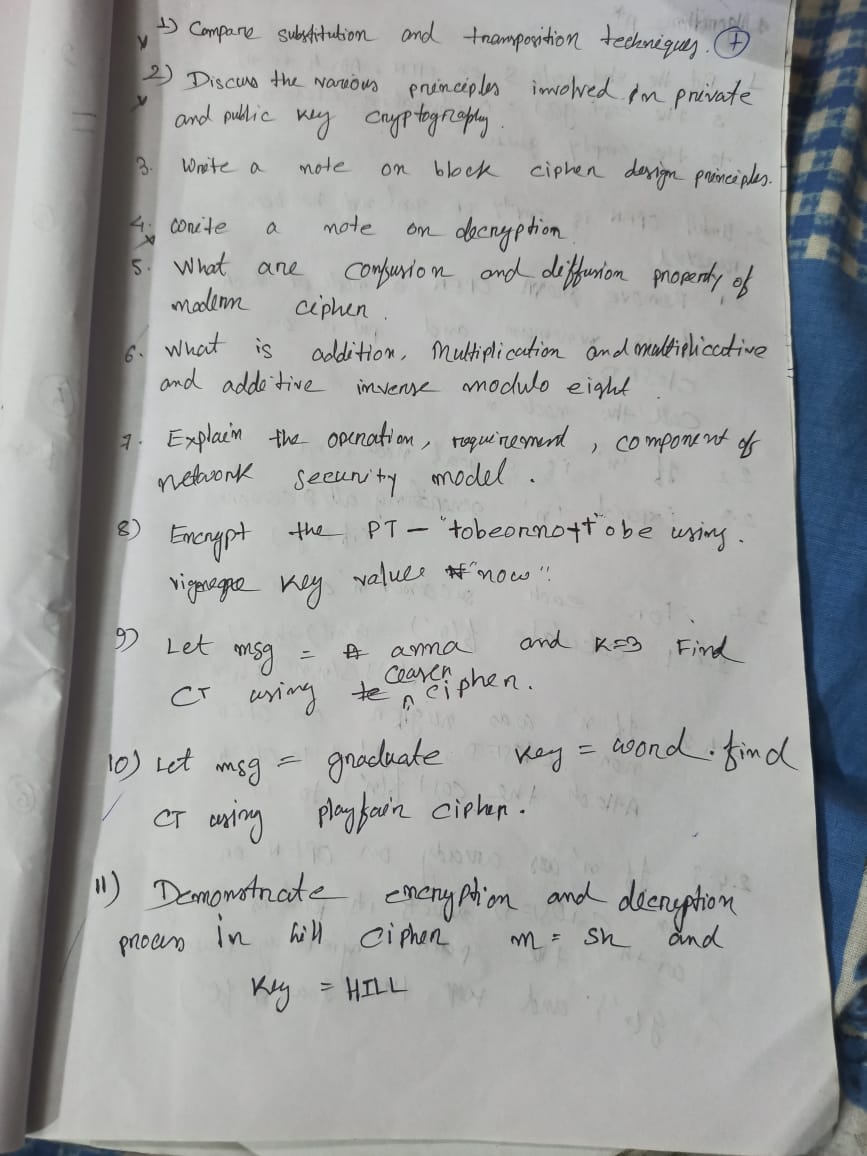 1) Compare substitution and transposition techniques. (7)
2) Discuss the various principles involved in private
and public key cryptography.
3. Write a note on block cipher design principles.
4. Write a note on decryption
5. What are confusion and diffusion property of
modern cipher.
6. What is addition, Multiplication and multiplicative
and additive inverse modulo eight
7. Explain the operation, requirement, component of
network security model.
8) Encrypt the PT - "tobeornott"obe using.
key values "now".
9) Let msg = anna and K=3 Find
CT using ceaser cipher.
10) Let msg = graduate key = word. find
CT using playfair cipher.
11) Demonstrate encryption and decryption
process in hill cipher m = sh and
Key = HILL